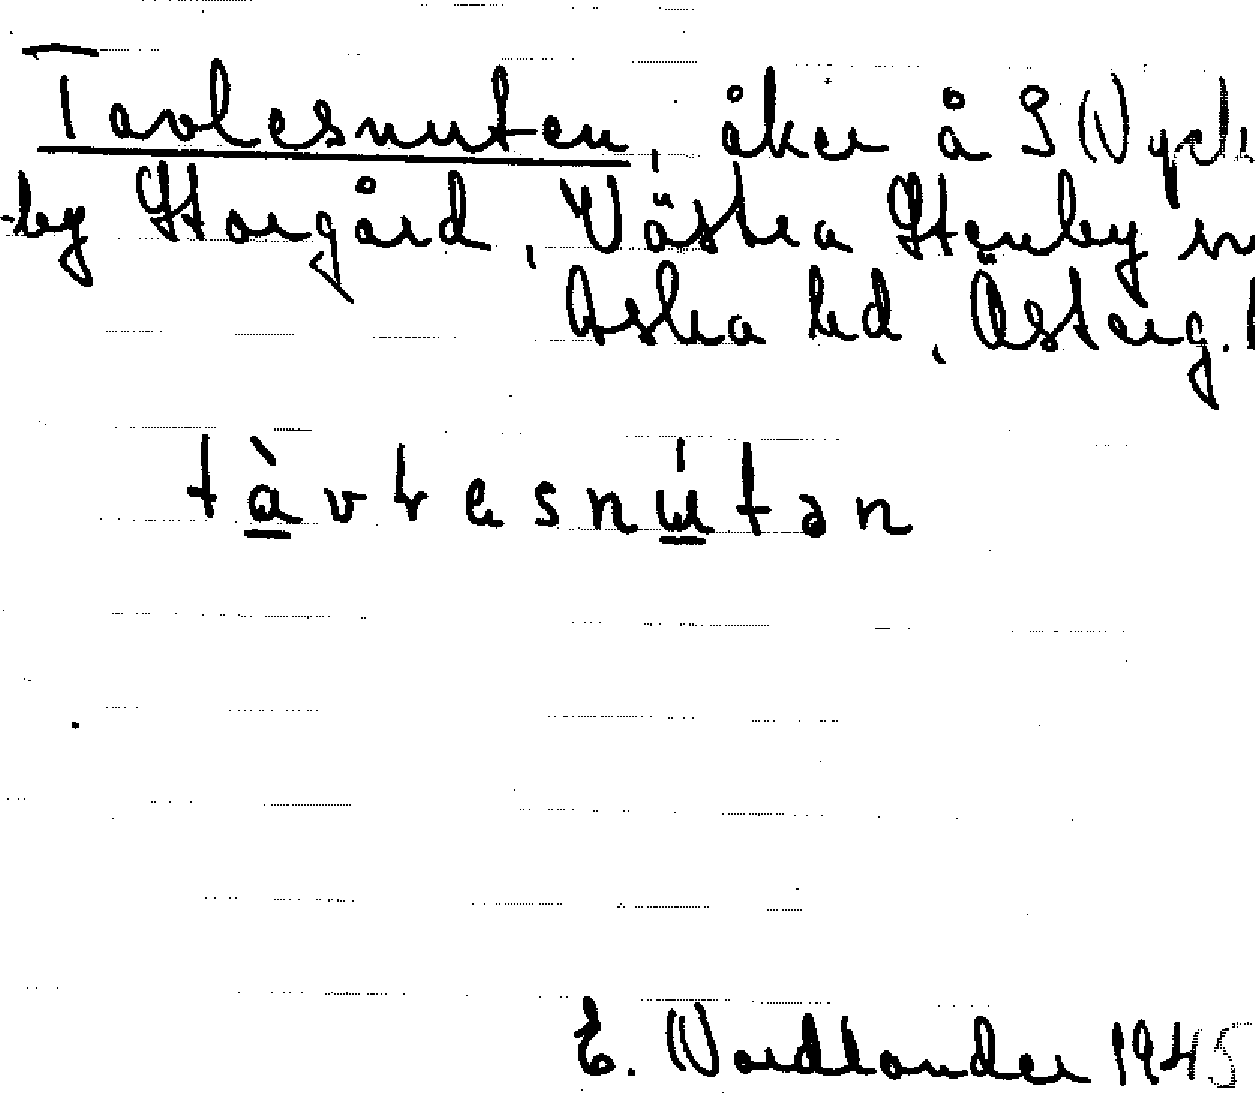 Tavlesnuten, åker å S Nyck
-by Storgård, Västra Stenby
Aska hd, Österg.
tàvɫesnútən
E. Nordlander 1945